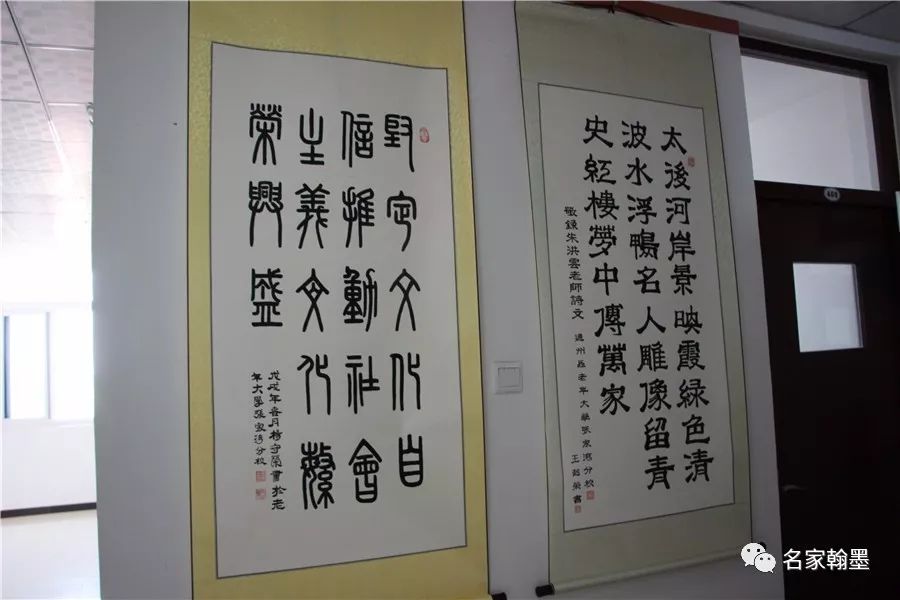 堅定文化自
信推動社會
主義文化繁
榮興盛
戊戌年春月 守榮書於老
年大學張家灣分校
太後河岸景映霞緑色清
波水浮鴨名人雕像留青
史紅樓夢中傳萬家
敬錄朱洪雲老師詩文 通州區老年大學張家灣分校
王 榮書
名家翰墨